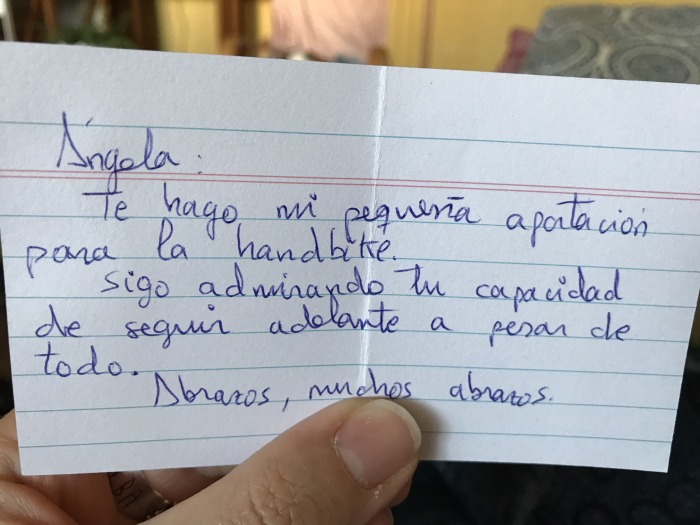 Ángela:
Te hago mi pequeña aportación
para la handbike.
Sigo admirando tu capacidad
de seguir adelante a pesar de
todo.
Abrazos, muchos abrazos.